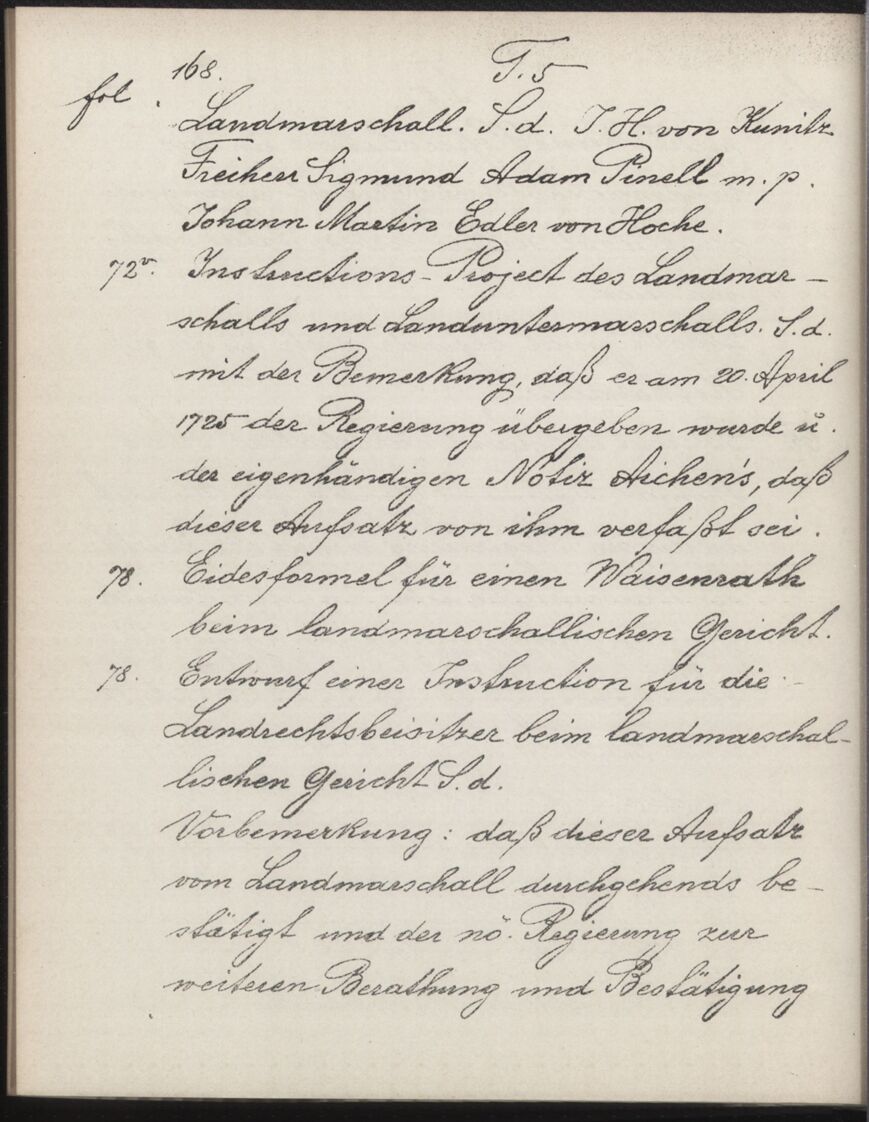 168. T. 5
fol.
Landmarschall. S. d. J. H. von Kunitz
Freiherr Sigmund Adam Pinell m. p.
Johann Martin Edler von Hocke.
72v. Instructions-Project des Landmar-
schalls und Landuntermarschalls. S. d.
mit der Bemerkung, daß er am 20. April
1725 der Regierung übergeben wurde u.
der eigenhändigen Notiz Aichen's, daß
dieser Aufsatz von ihm verfaßt sei.
78. Eidesformel für einen Waisenrath
beim landmarschallischen Gericht.
78. Entwurf einer Instruction für die
Landrechtsbeisitzer beim landmarschal-
lischen Gericht S. d.
Vorbemerkung: daß dieser Aufsatz
vom Landmarschall durchgehends be-
stätigt und der nö. Regierung zur
weiteren Berathung und Bestätigung